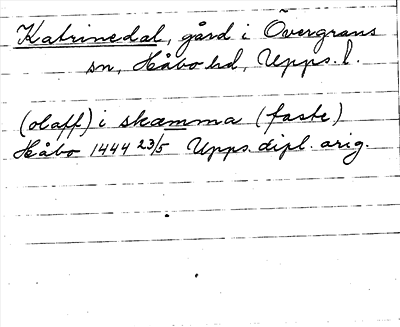 Katrinedal, gård i Övergrans
sn, Håbo hd, Upps. l.
(olaff) i skæmma (faste)
Håbo 1444 23/5 Upps. dipl. orig.